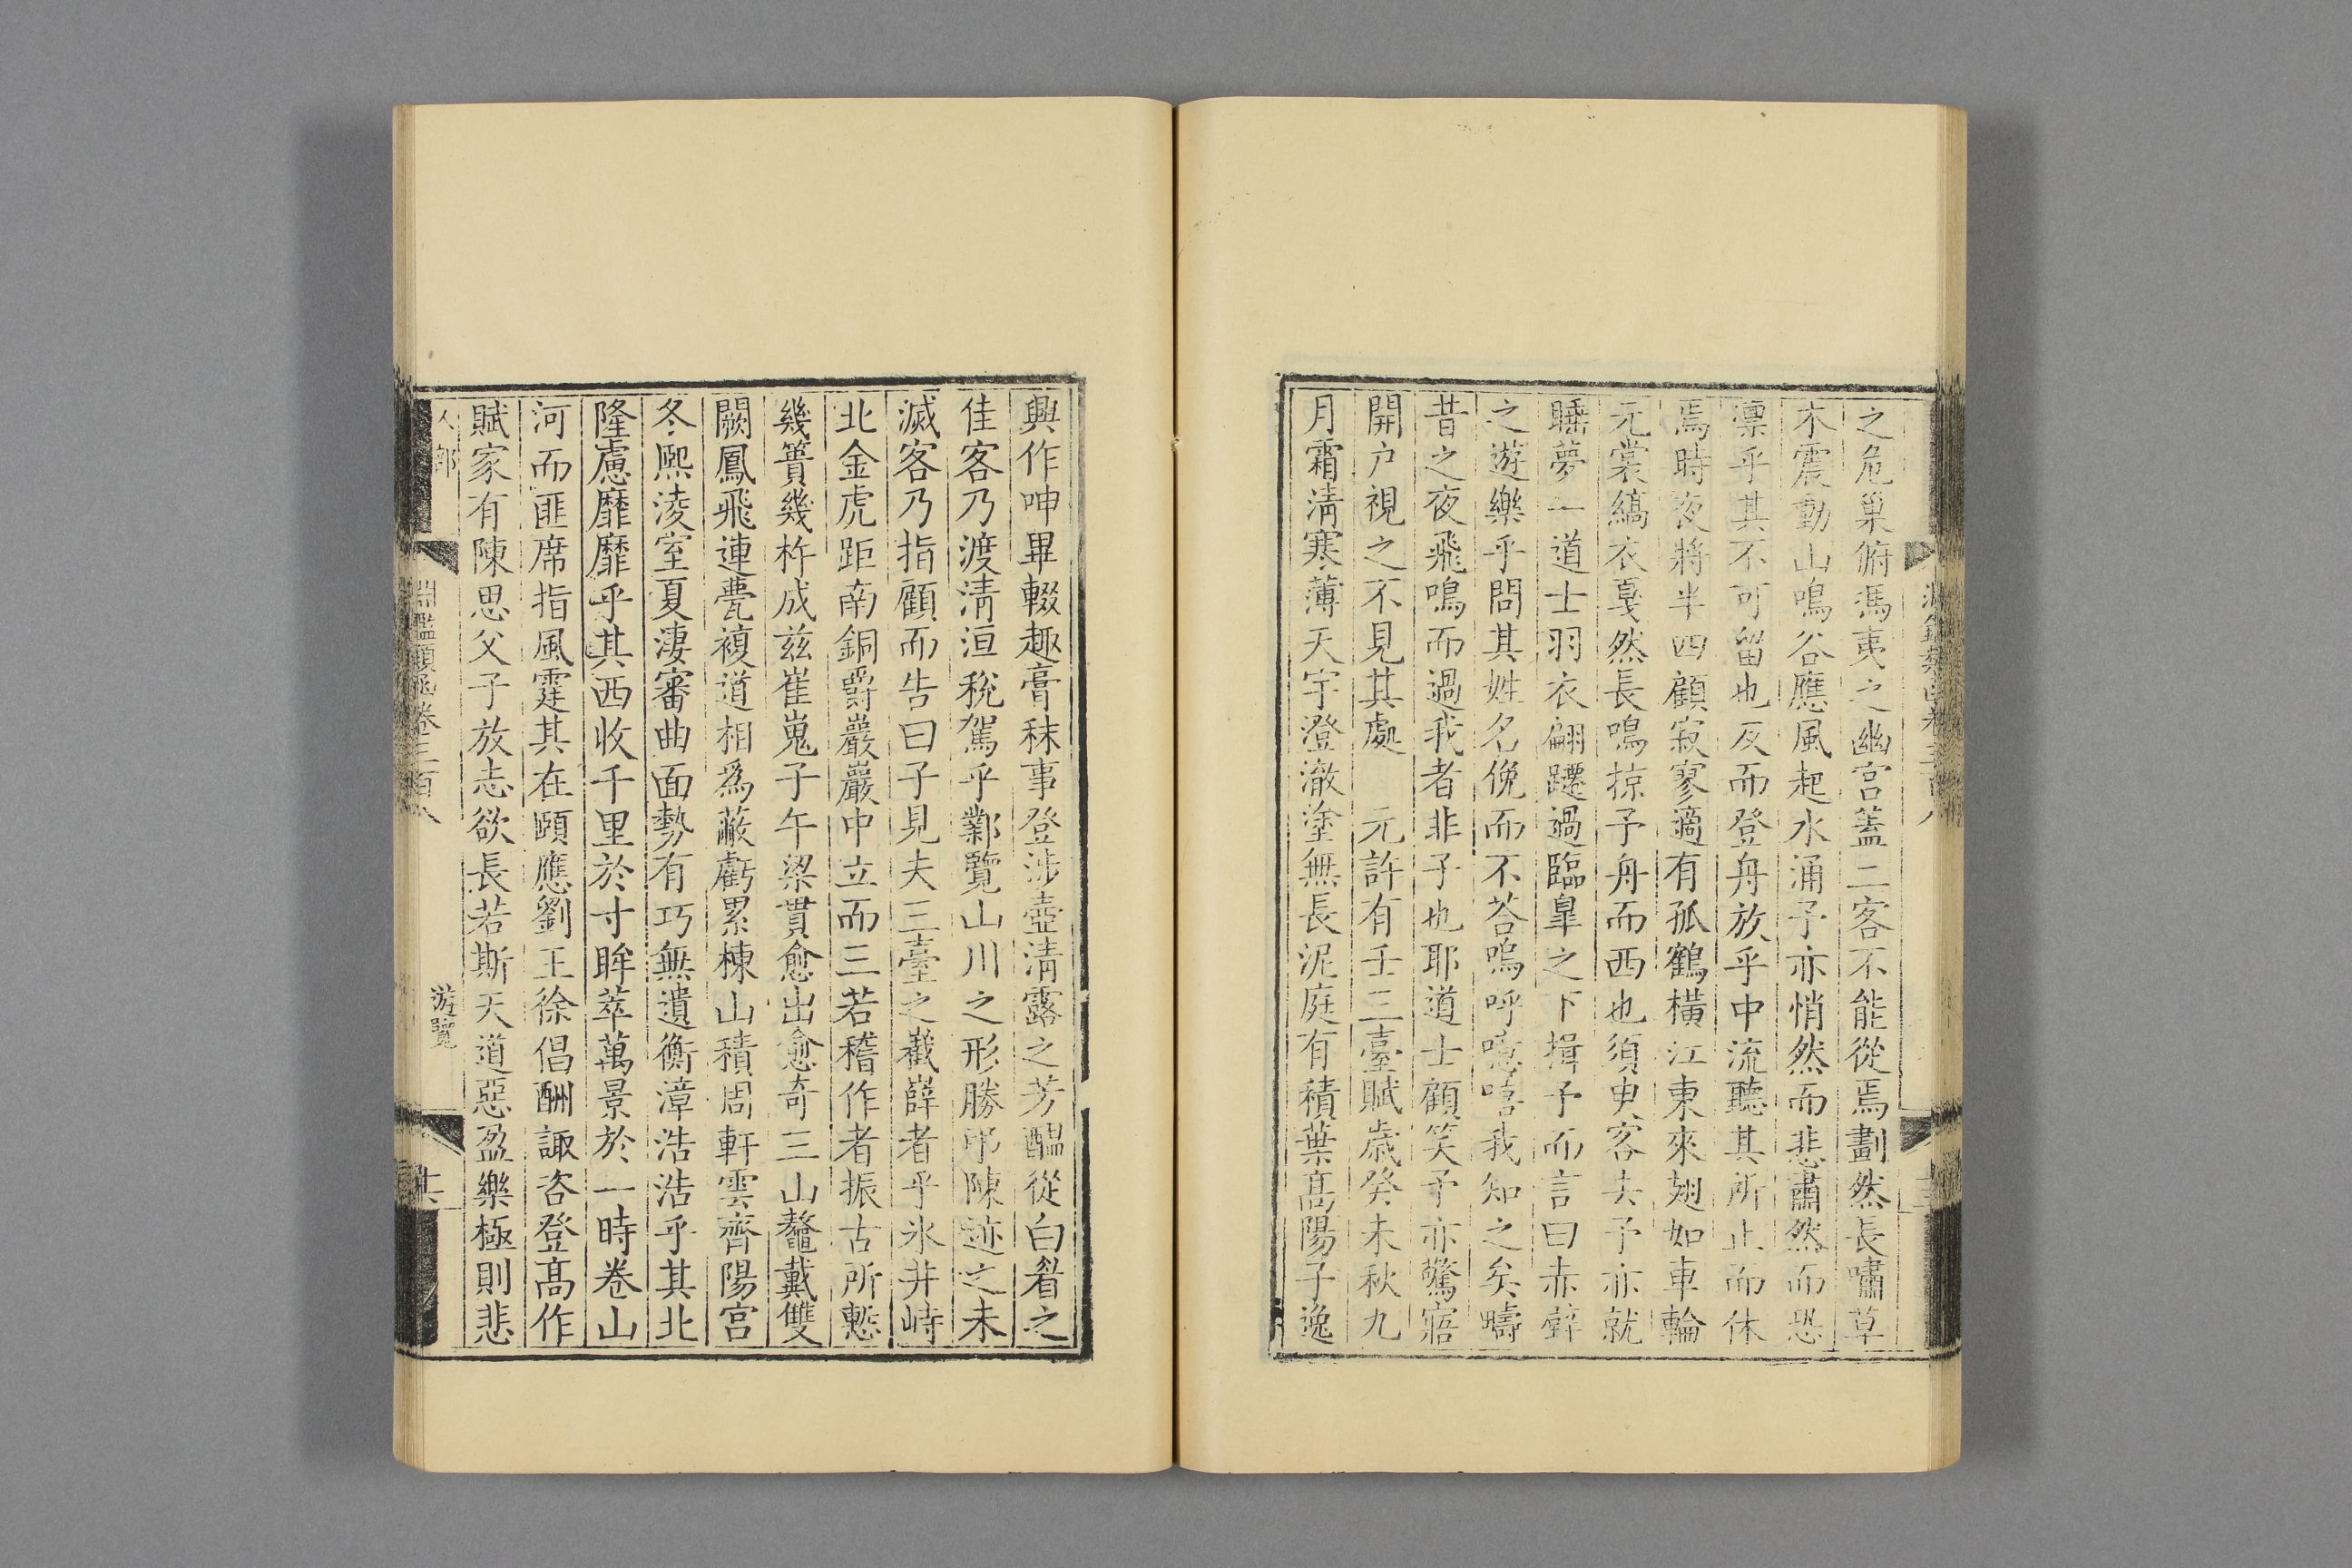 之危巢俯馮夷之幽宮蓋二客不能從焉劃然長嘯草
木震動山鳴谷應風起水涌予亦悄然而悲肅然而恐
凜乎其不可留也反而登舟放乎中流聽其所止而休
焉時夜將半四顧寂寥適有孤鶴橫江東來翅如車輪
元裳縞衣戛然長鳴掠予舟而西也須臾客去予亦就
睡夢一道士羽衣翩躚過臨臯之下揖予而言曰赤壁
之遊樂乎問其姓名俛而不荅嗚呼噫嘻我知之矣疇
昔之夜飛鳴而過我者非子也耶道士顧笑予亦驚寤
開户視之不見其處　元許有壬三臺賦歲癸未秋九
月霜淸寒薄天宇澄澈塗無長泥庭有積葉髙陽子逸
興作呻畢輟趣膏秣事登涉壺淸露之芳醖從白眷之
佳客乃渡淸洹稅駕乎鄴覽山川之形勝弔陳迹之未
滅客乃指顧而告曰子見夫三臺之嶻嶭者乎氷井峙
北金虎距南銅爵巖巖中立而三若稽作者振古所慙
幾簣幾杵成兹崔嵬子午梁貫愈出愈奇三山鼇戴雙
闕鳳飛連甍複道相爲蔽虧累棟山積周軒雲齊陽宮
冬熈淩室夏淒審曲面勢有巧無遺衡漳浩浩乎其北
隆慮靡靡乎其西收千里於寸眸萃萬景於一時卷山
河而匪席指風霆其在頤應劉王徐倡酬諏咨登髙作
賦家有陳思父子放志欲長若斯天道惡盈樂極則悲
人部
淵鑑類函卷三百八
遊覽